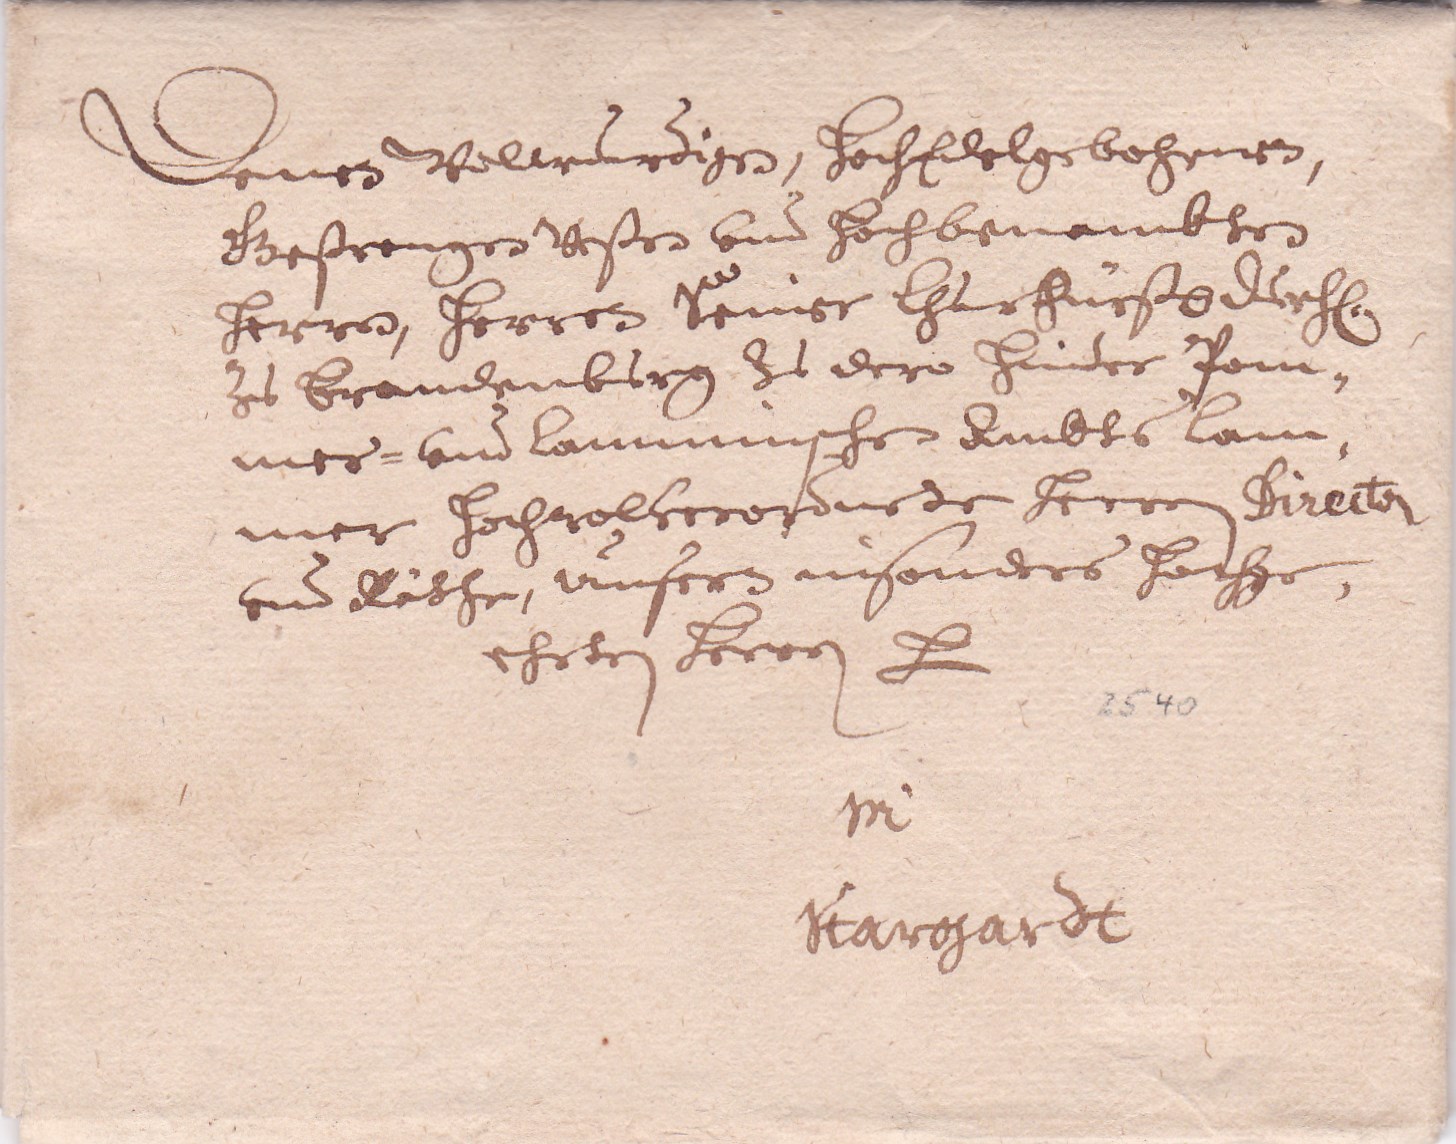 Denen Wollwürdigen, HochEdelgebohrnen,
Gestrengen Vesten und Hochbenambten
Herren, Herren Seiner Churfürstl. Durchl.
zu Brandenburg zu dero Hinter Pom-
mer= und Camminischen Ambts Cam-
mer Hochwolverordnete Herren Director
und Räthe, Unsern insonders Hochge-
ehrten Herren
in
Stargardt
2540